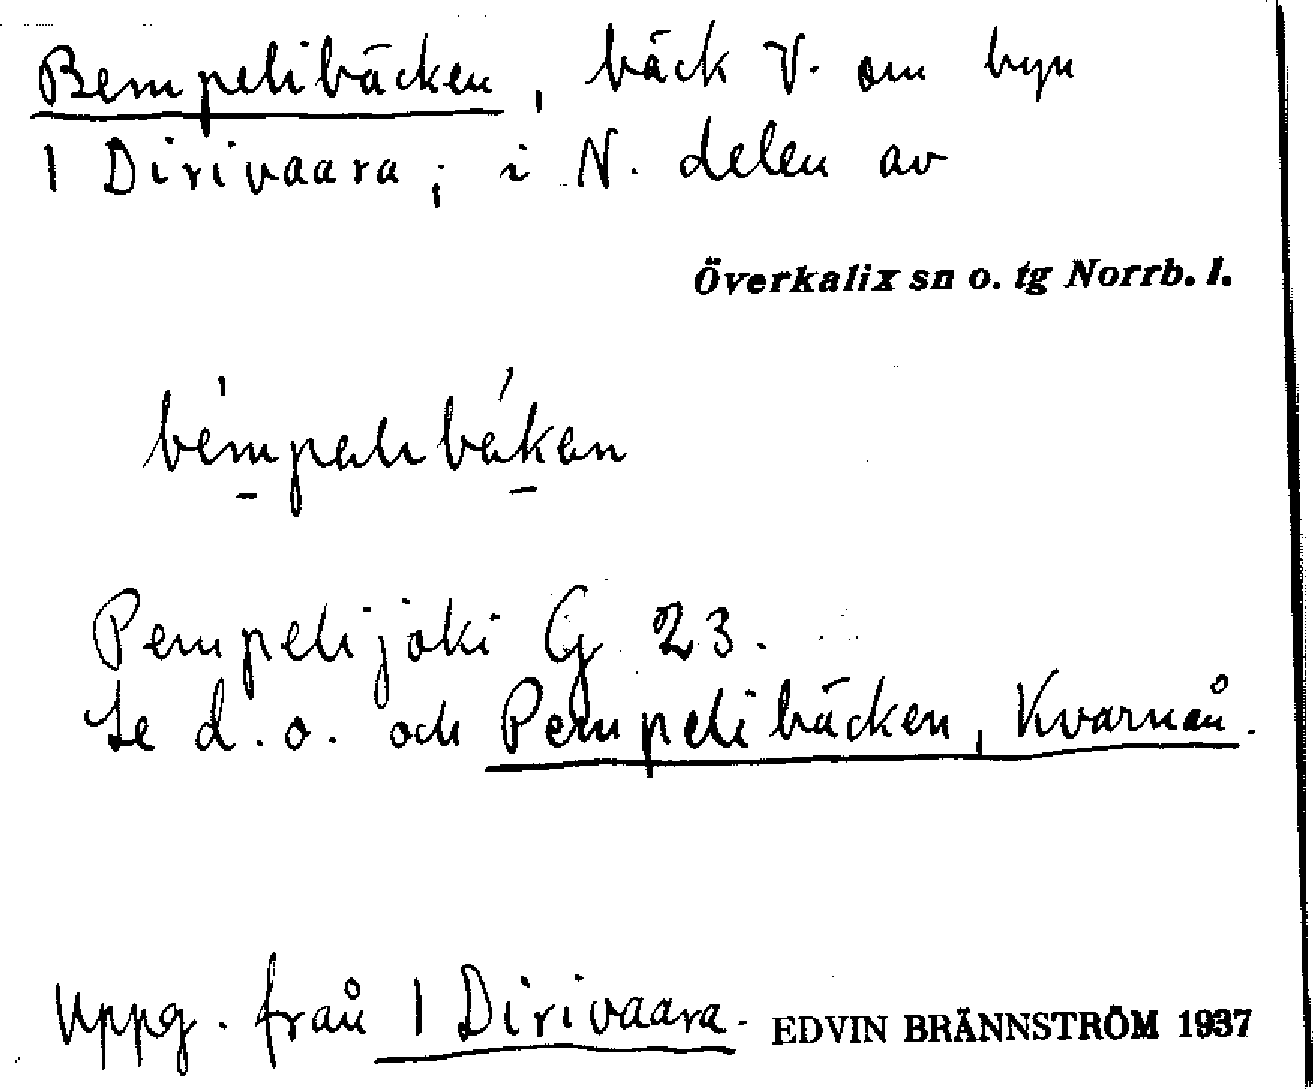 Bempelibäcken, bäck V. om byn
1 Dirivaara; i N. delen av
Överkalix sn o. tg Norrb. l.
bémpelibákan
Pempelijoki G 23.
Se d.o. och Pempelibäcken, Kvarnån.
Uppg. från 1 Dirivaara. EDVIN BRÄNNSTRÖM 1937